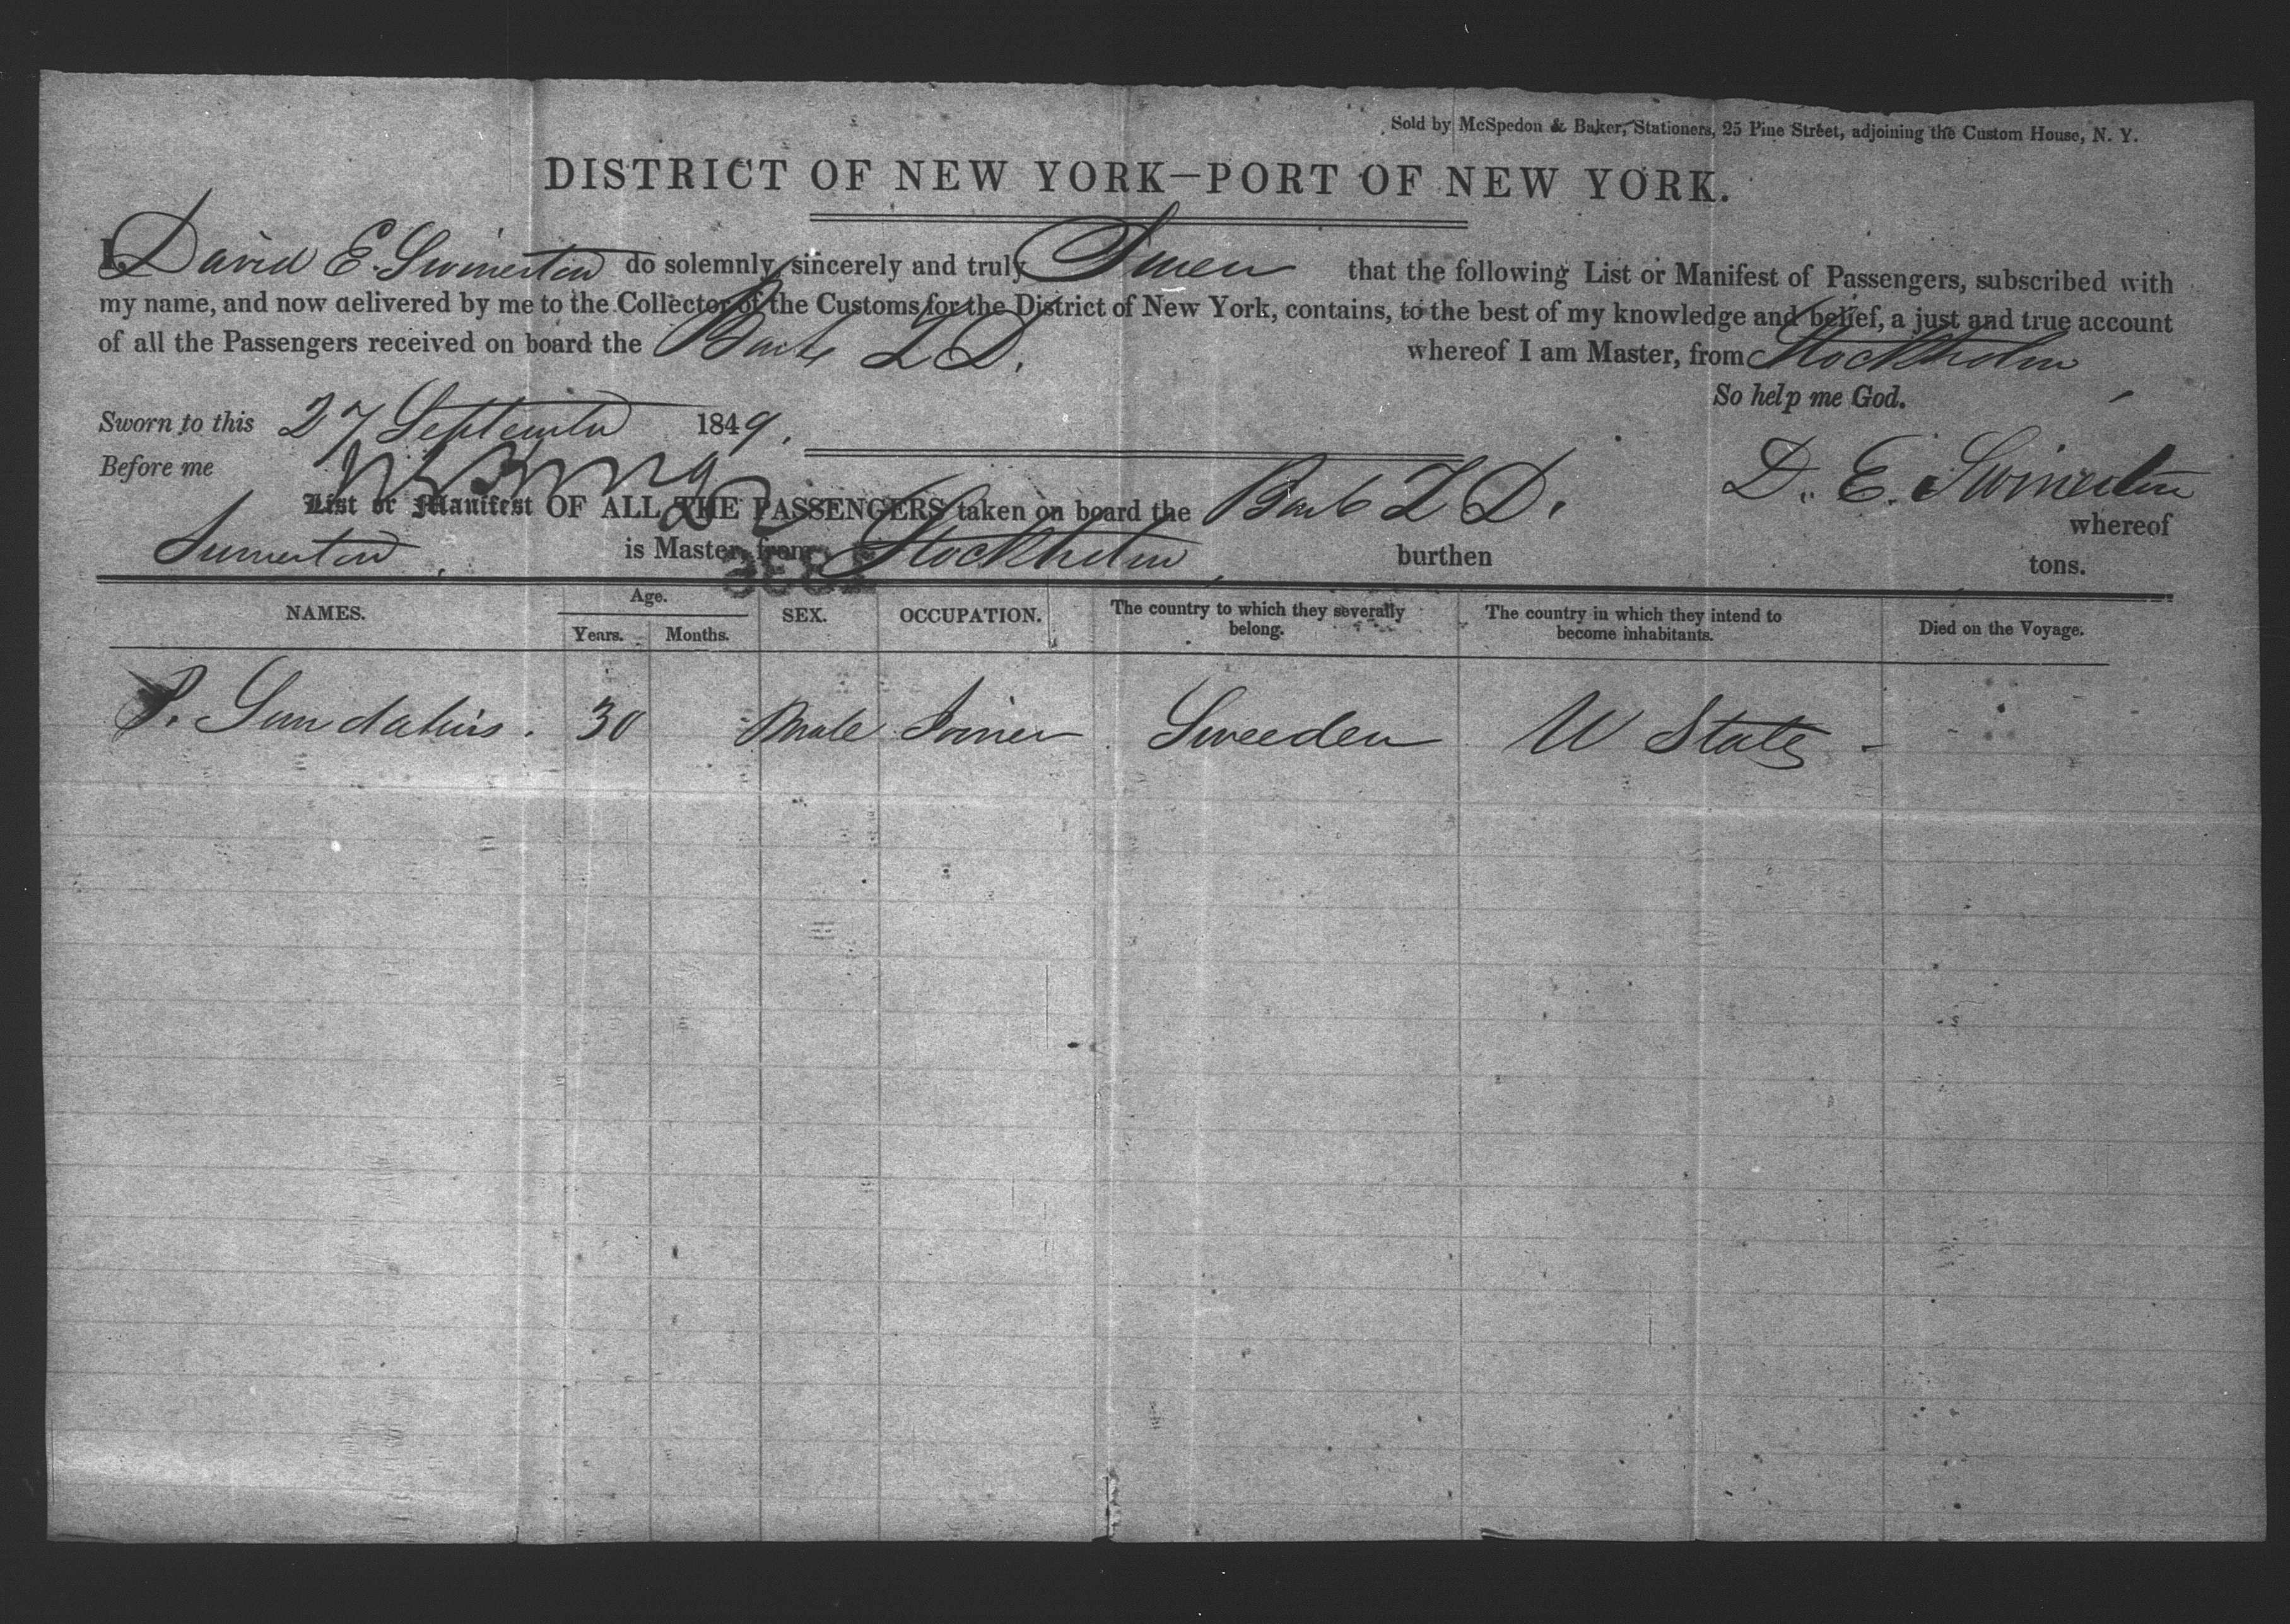 Sold by McSpedon & Baker, Stationers, 25 Pine Street, adjoining the Custom House, N. Y.
DISTRICT OF NEW YORK—PORT OF NEW YORK.
I David E. Swinerton do solemnly, sincerely and truly Swear that the following List or Manifest of Passengers, subscribed with
my name, and now delivered by me to the Collector of the Customs for the District of New York, contains, to the best of my knowledge and belief, a just and true account
of all the Passengers received on board the Bark Z D. whereof I am Master, from Stockholm
So help me God.
Sworn to this 27 September 1849.
Before me
D. E. Swinerton
List or Manifest OF ALL THE PASSENGERS taken on board the Bark Z D. whereof
Swinerton is Master, from Stockholm, burthen tons.
NAMES. Age. Years. Months. SEX. OCCUPATION. The country to which they severally belong. The country in which they intend to become inhabitants. Died on the Voyage.
P. 30 Male Joiner Sweeden U States -